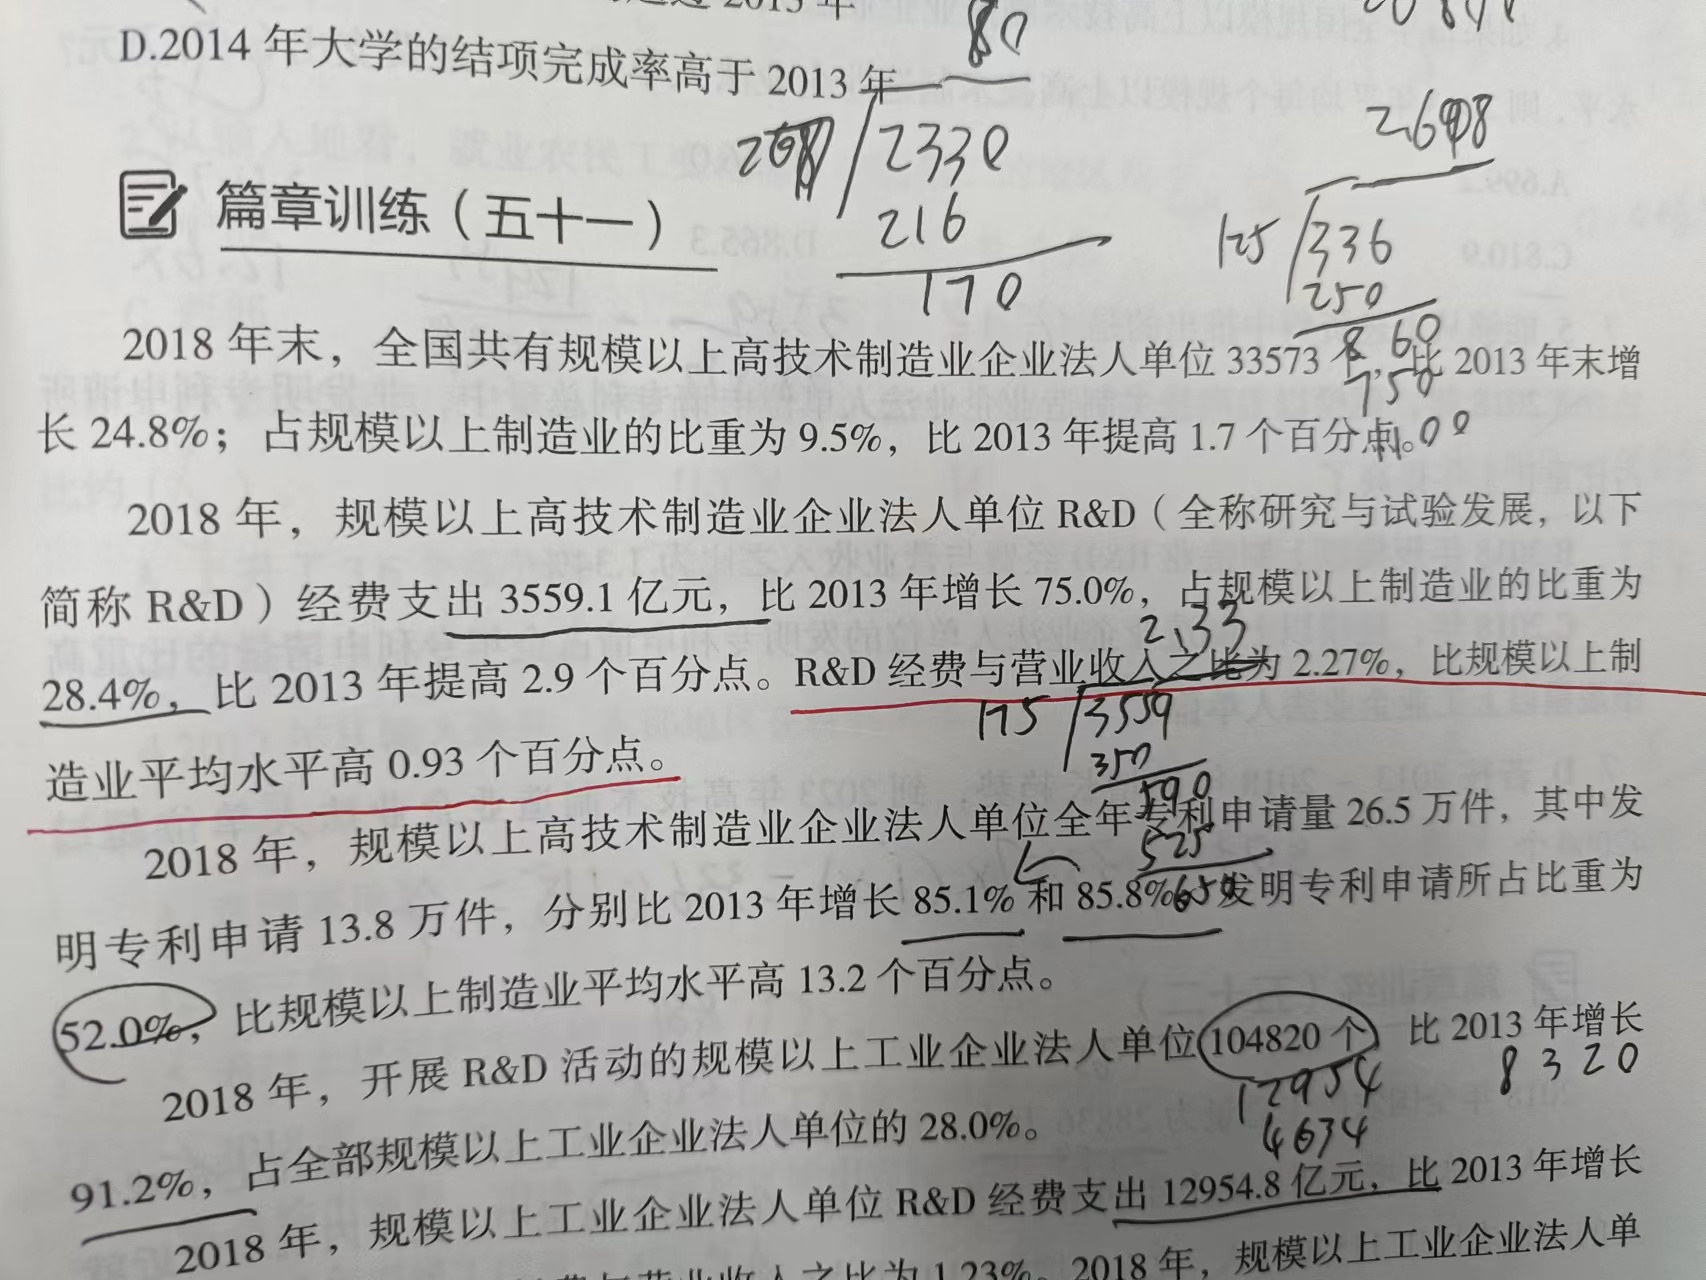 2013年
D.2014年大学的结项完成率高于2013年
80
2330
216
170
2.698
125
336
250
860
750
1100
篇章训练（五十一）
2018年末，全国共有规模以上高技术制造业企业法人单位33573个，比2013年末增
长24.8%；占规模以上制造业的比重为9.5%，比2013年提高1.7个百分点。
2018年，规模以上高技术制造业企业法人单位R&D（全称研究与试验发展，以下
简称R&D）经费支出3559.1亿元，比2013年增长75.0%，占规模以上制造业的比重为
2.33
28.4%，比2013年提高2.9个百分点。R&D经费与营业收入之比为2.27%，比规模以上制
175
3559
350
590
525
650
造业平均水平高0.93个百分点。
2018年，规模以上高技术制造业企业法人单位全年专利申请量26.5万件，其中发
明专利申请13.8万件，分别比2013年增长85.1%和85.8%。发明专利申请所占比重为
52.0%，比规模以上制造业平均水平高13.2个百分点。
2018年，开展R&D活动的规模以上工业企业法人单位104820个，比2013年增长
12954
8320
4634
91.2%，占全部规模以上工业企业法人单位的28.0%。
2018年，规模以上工业企业法人单位R&D经费支出12954.8亿元，比2013年增长
费与营业收入之比为1.23%。2018年，规模以上工业企业法人单